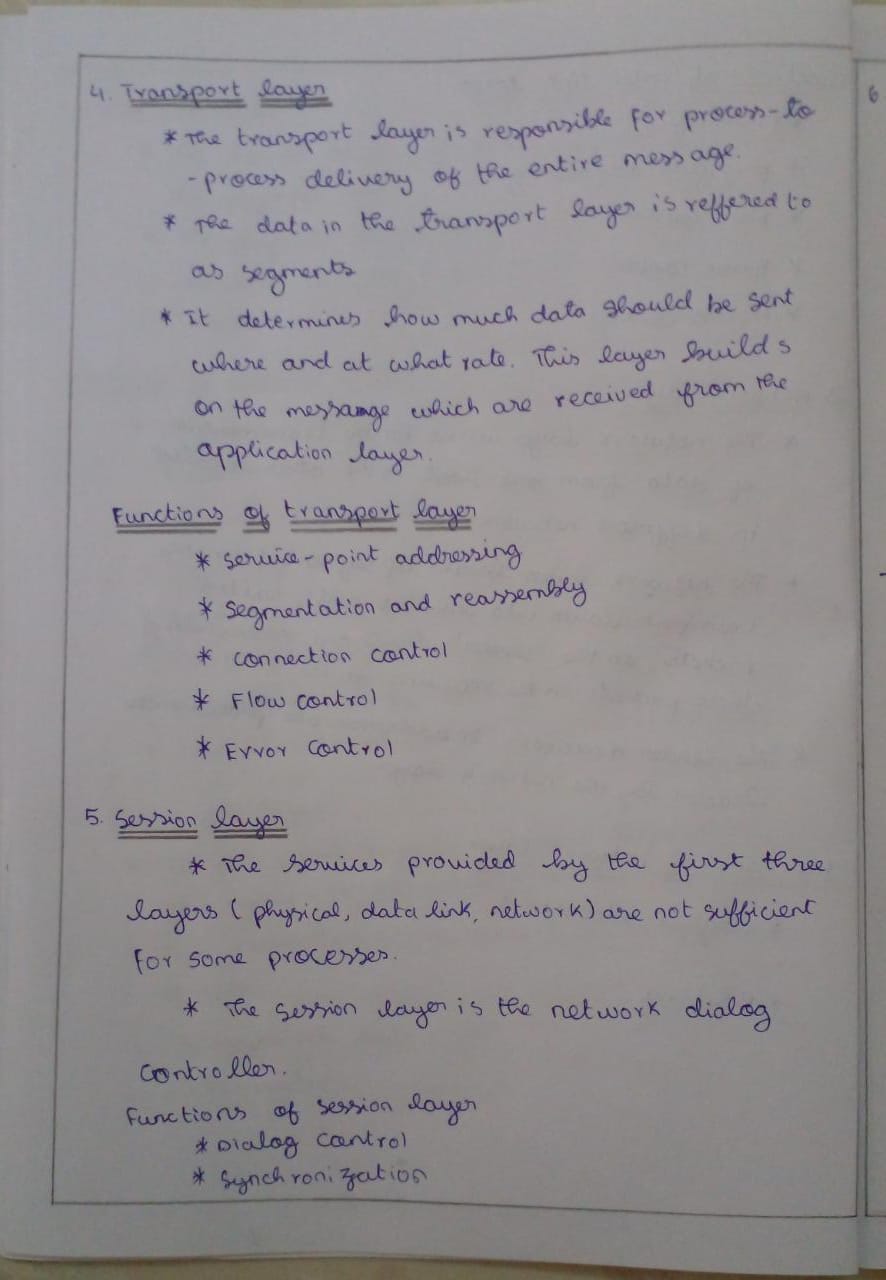 4. Transport layer
* The transport layer is responsible for process-to
-process delivery of the entire message.
* The data in the transport layer is reffered to
as segments
* It determines how much data should be sent
where and at what rate. This layer builds
on the message which are received from the
application layer.
Functions of transport layer
* Service-point addressing
* Segmentation and reassembly
* Connection control
* Flow control
* Error control
5. Session layer
* The services provided by the first three
layers ( physical, data link, network) are not sufficient
for some processes.
* The session layer is the network dialog
controller.
Functions of session layer
* Dialog control
* Synchronization
6